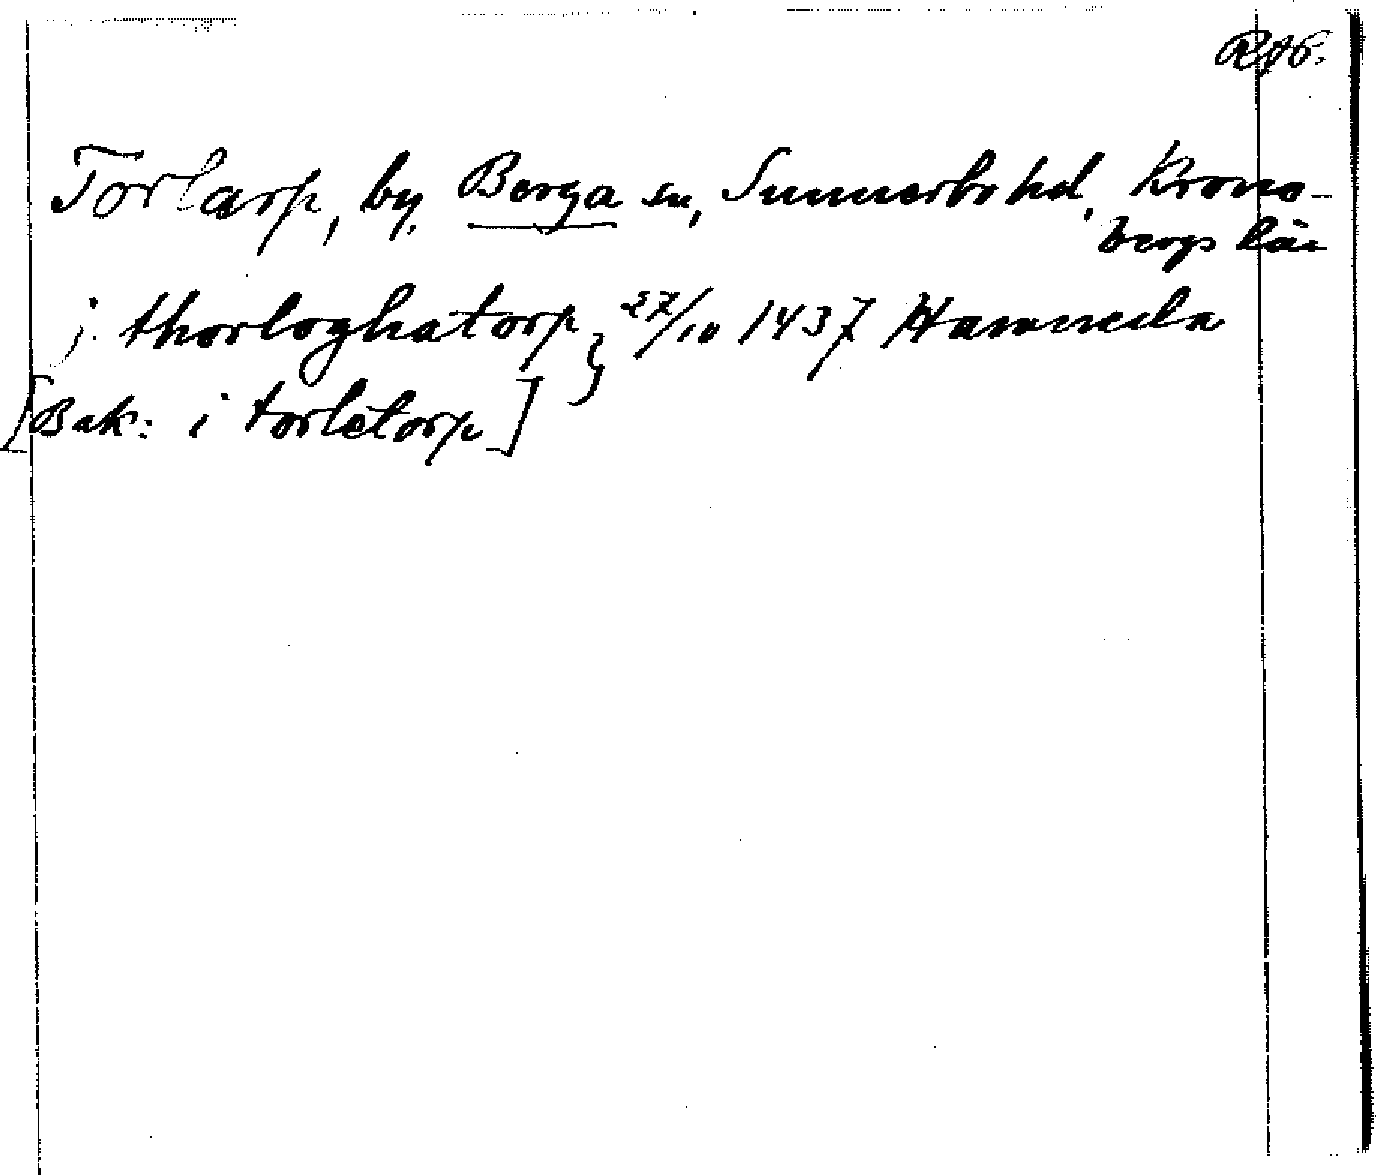 RAP.
Torlarp, by, Berga sn, Sunnerbo hd, Krono-
bergs län
j thorloghatorp } 27/10 1437 Hamneda
[Bak: i torletorp]